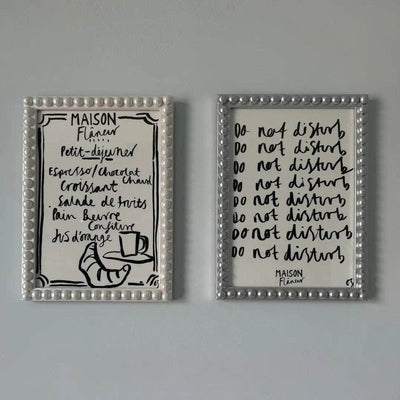 MAISON
Flâneur
Petit-dejeuner
Espresso/Chocolat
Chaud
Croissant
Salade de fruits
Pain Beurre
Confiture
Jus d'orange
Do not disturb
Do not disturb
Do not disturb
Do not disturb
Do not disturb
Do not disturb
Do not disturb
Do not disturb
MAISON
Flâneur